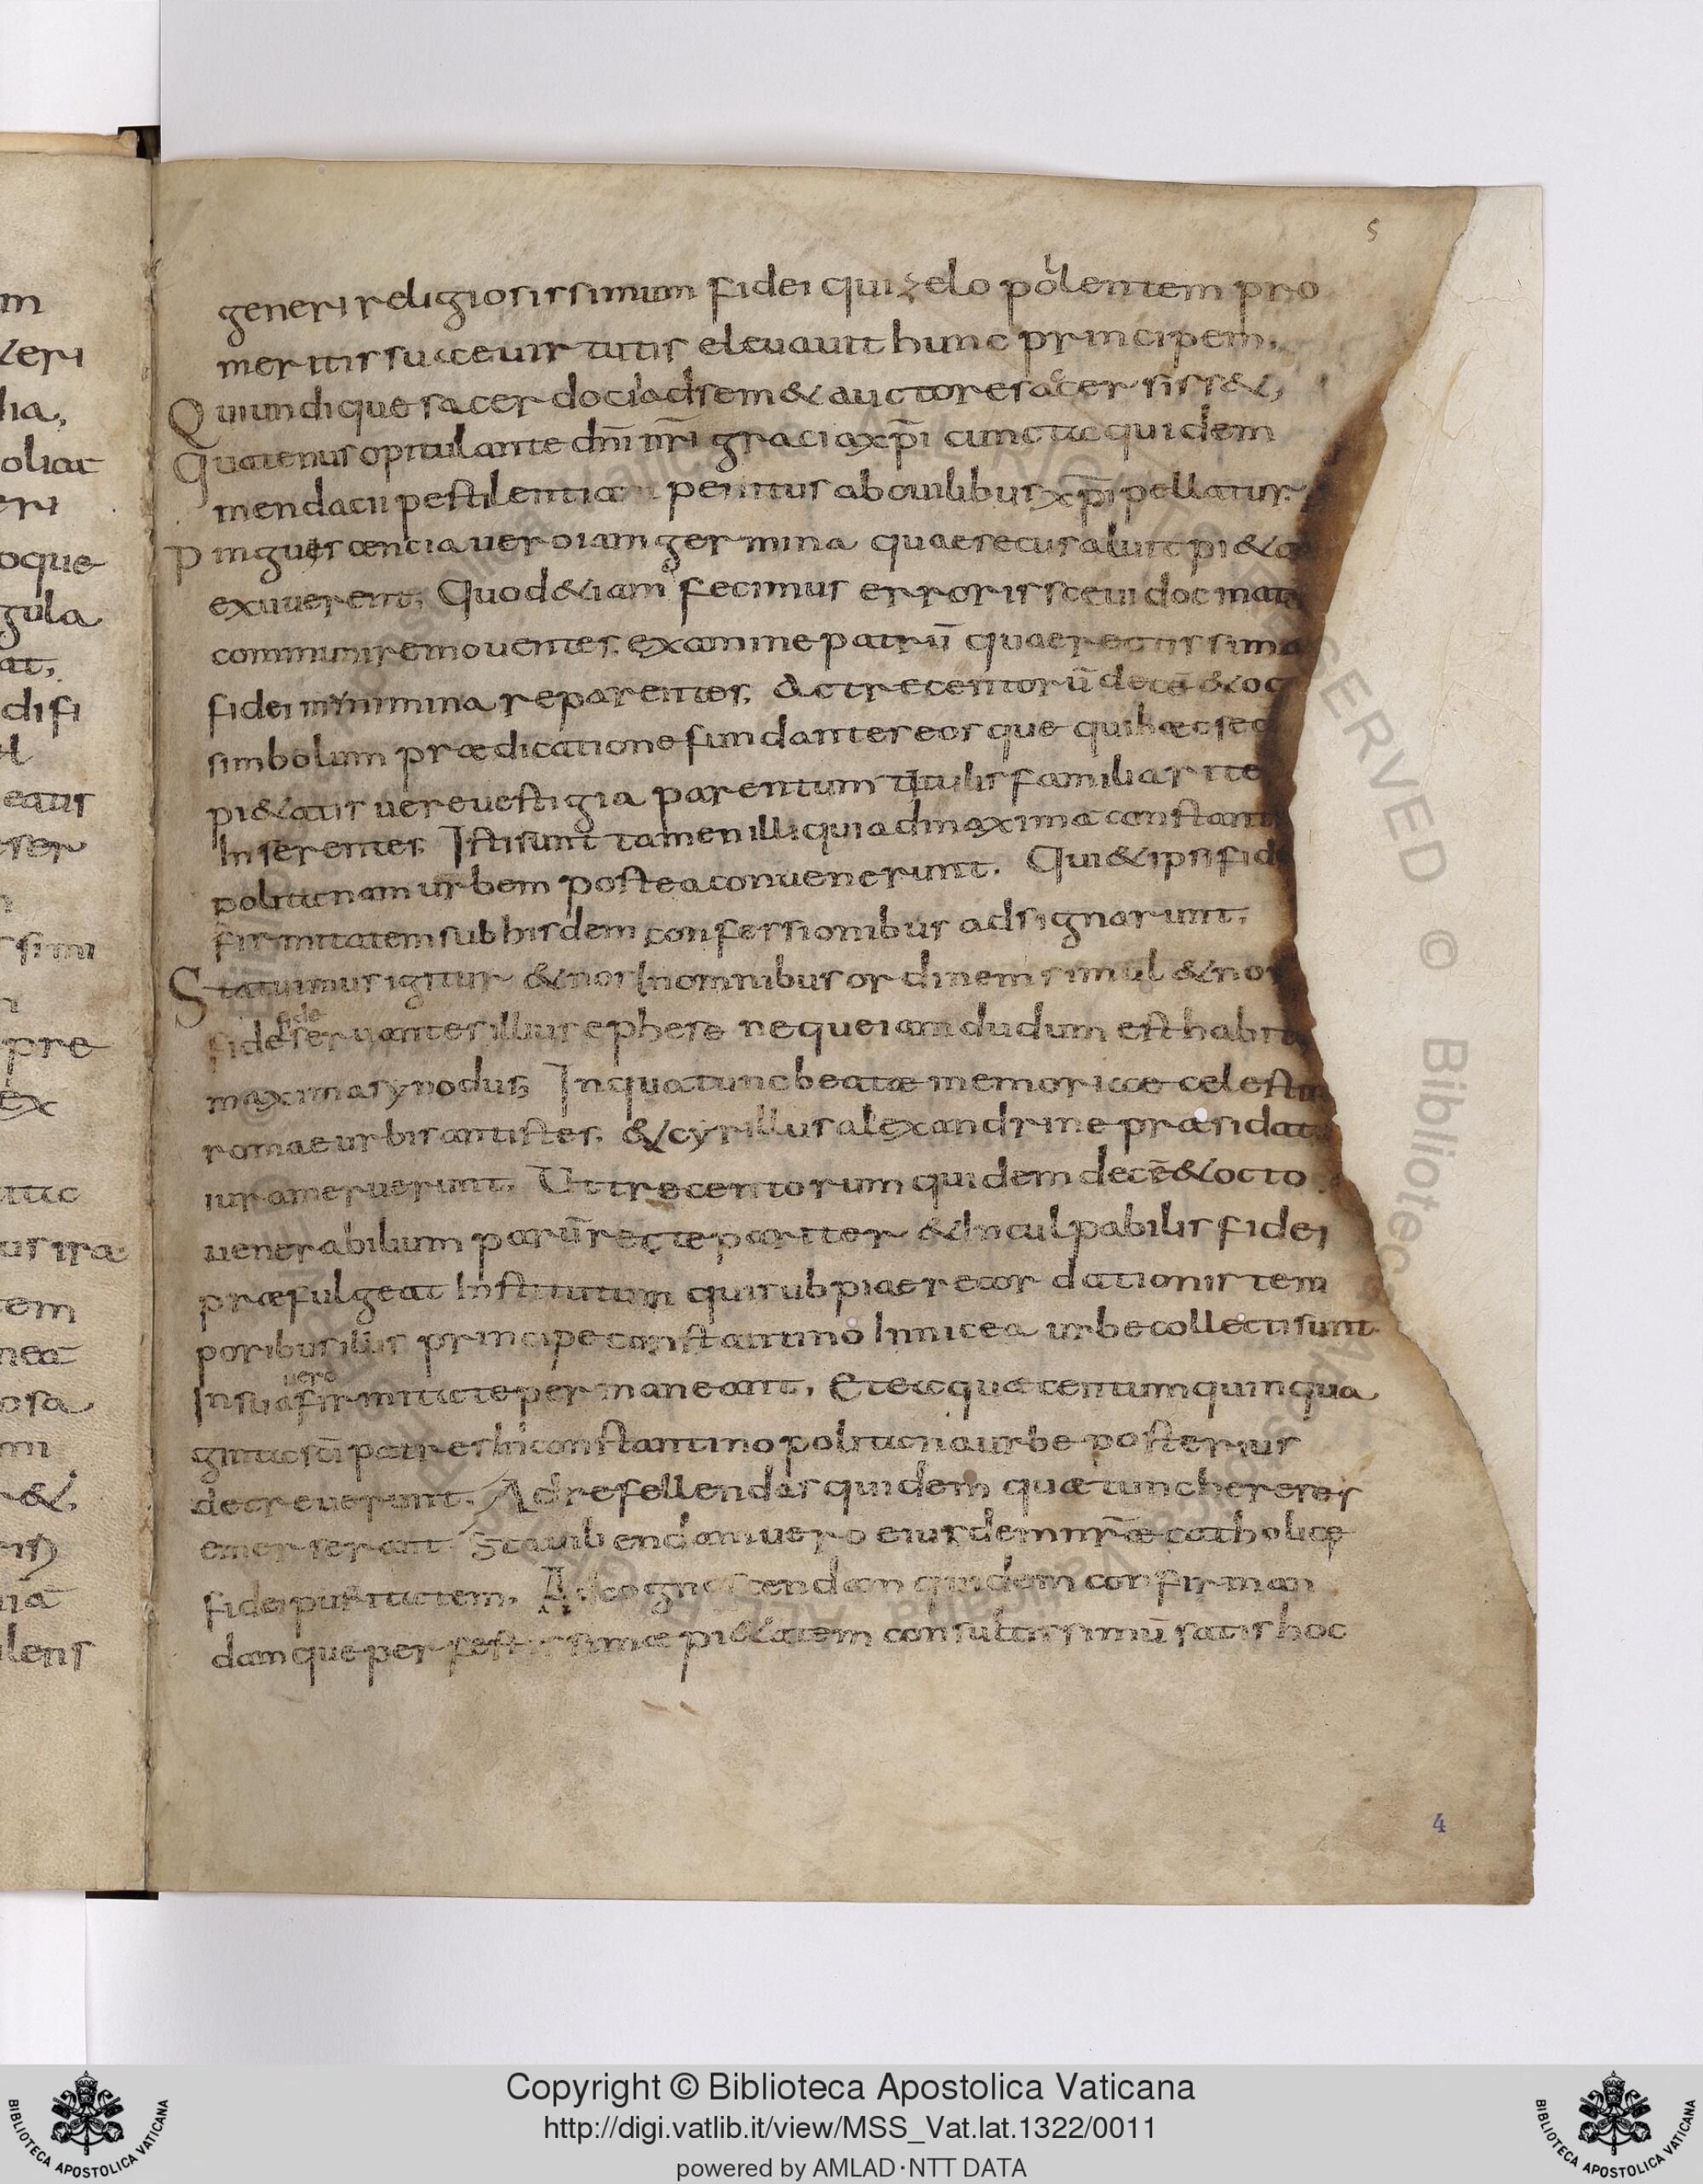 5
generi religiosissimum fidei qui zelo pollentem pro
meritis suae virtutis elevavit hunc principem,
Qui undique sacerdocia ad sem & auctores acer sisset,
Quatenus opitulante dn̄i nr̄i gracia xp̄i cuncta quidem
mendacii pestilentia penitus ab ovilibus xp̄i pellatur.
Pinguescencia vero iam germina quae secus aluit pi&a
exuuerent; Quod &iam fecimus erroris scevi docmat
communi removentes examine patrū quae rectissima
fidei minimina reparentes, Ac trecentorū decē & oc
simbolum prædicatione fundantes eosque qui hæc sec
pi&atis vere vestigia parentum titulis familiarite
Inserentes Isti sunt tamen illi qui ad maxima constanti
politanam urbem postea convenerunt. Qui & ipsi fide
firmitatem sub hisdem confessionibus adsignarunt,
Statuimus igitur & nos In omnibus ordinem simul & nos
fide servantes illius ephese neque iam dudum est habita
maxima synodus; In qua tunc beatæ memoriae celestin
romae urbis antistes, & cyrillus alexandrine præsidat
iura meruerunt, Ut trecentorum quidem decē & octo
venerabilium patrū recte pariter & Inculpabilis fidei
præfulgeat Institutum qui sub piae recordationis tem
poribus illis principe constantino In nicea urbe collecti sunt
vero
In sua firmitate permaneant, Et ea quæ centum quinqua
ginta sc̄i patres In constantinopolitana urbe posterius
decreverunt, Ad refellendas quidem quæ tunc hereses
emerserant Stabiliendam vero eiusdem nr̄æ catholicæ
fidei puritatem, Ad cognoscendam quidem confirman
damque perfectissimæ pi&atem consultissimū satis hoc
4
Copyright © Biblioteca Apostolica Vaticana
http://digi.vatlib.it/view/MSS_Vat.lat.1322/0011
powered by AMLAD·NTT DATA
BIBLIOTECA APOSTOLICA VATICANA
BIBLIOTECA APOSTOLICA VATICANA